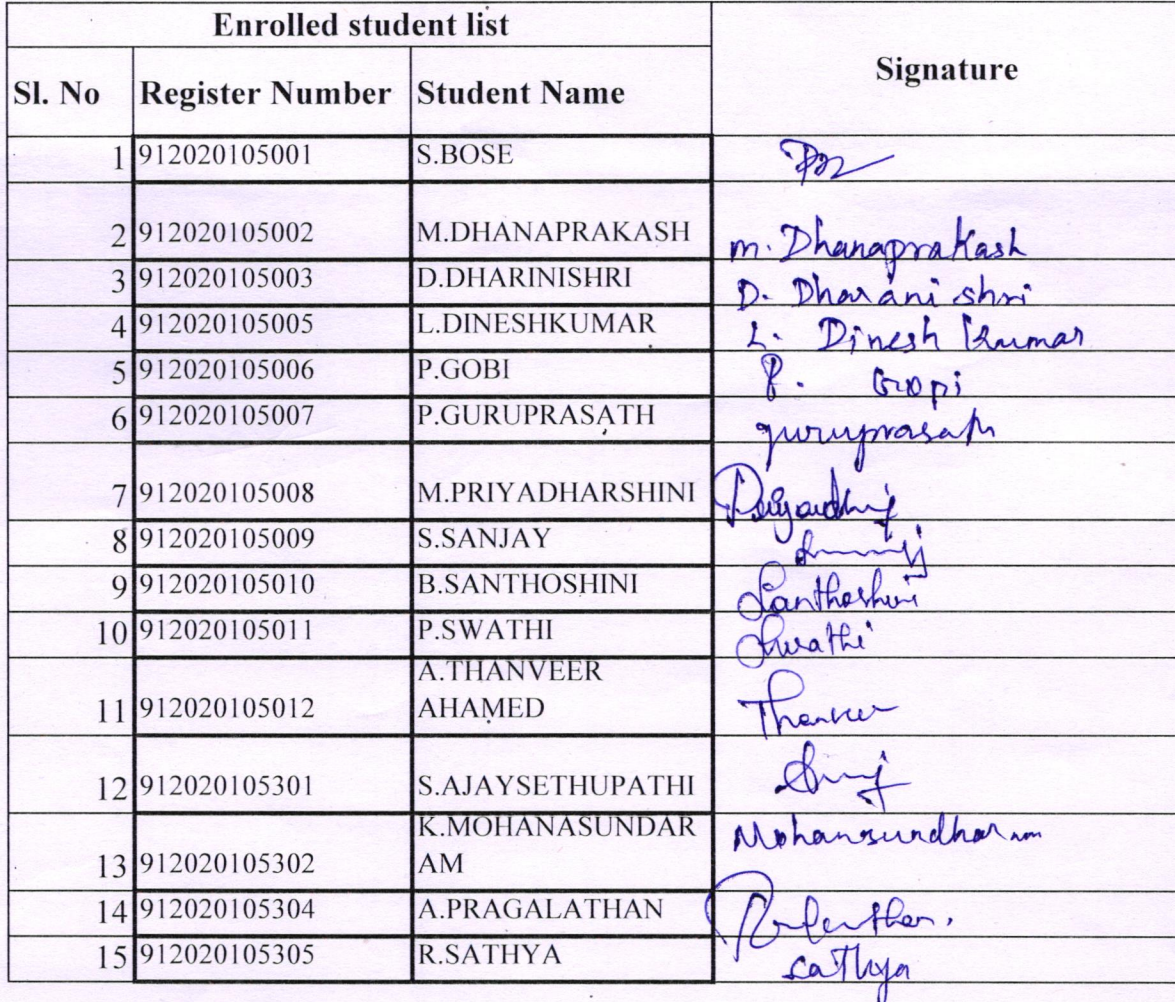 Enrolled student list
Signature
Sl. No Register Number Student Name
1 912020105001 S.BOSE
2 912020105002 M.DHANAPRAKASH m. Dhanaprakash
3 912020105003 D.DHARINISHRI D. Dharani shri
4 912020105005 L.DINESHKUMAR L. Dinesh Kumar
5 912020105006 P.GOBI P. Gopi
6 912020105007 P.GURUPRASATH guruprasath
7 912020105008 M.PRIYADHARSHINI
8 912020105009 S.SANJAY
9 912020105010 B.SANTHOSHINI Santhoshini
10 912020105011 P.SWATHI Swathi
A.THANVEER
11 912020105012 AHAMED Thanveer
12 912020105301 S.AJAYSETHUPATHI
K.MOHANASUNDAR
13 912020105302 AM Mohansundharam
14 912020105304 A.PRAGALATHAN
15 912020105305 R.SATHYA Sathya